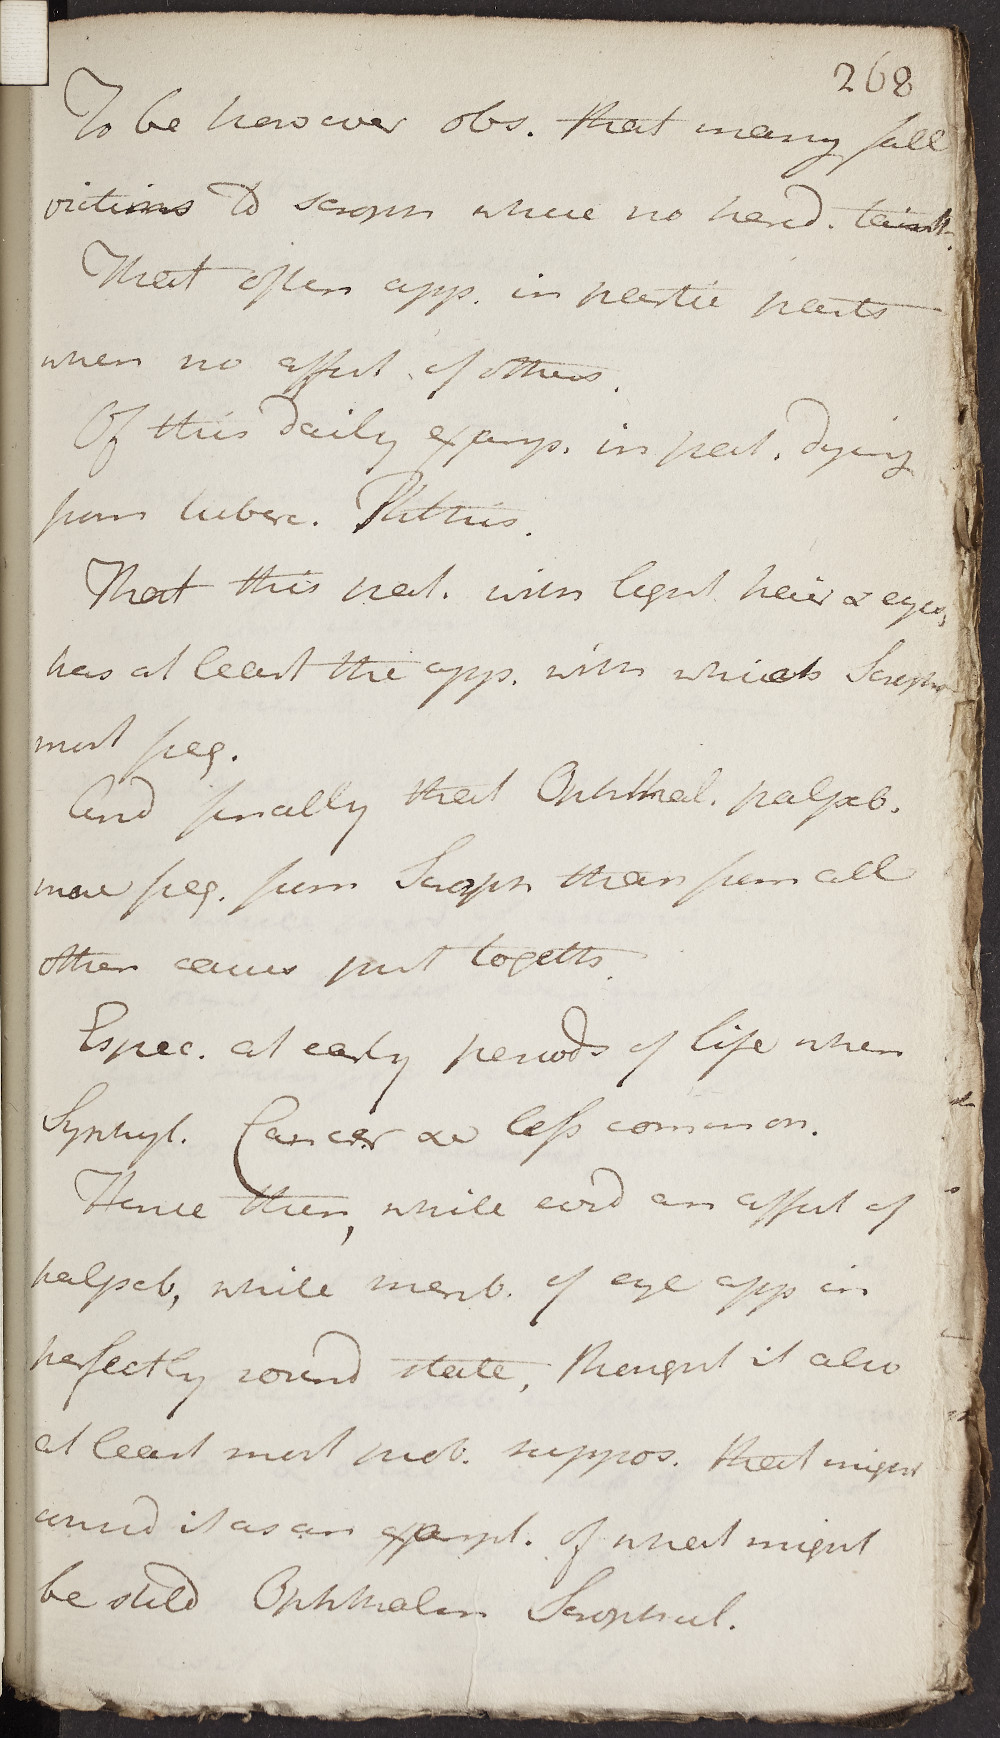 268
To be however obs. that many fall
victims to Scroph where no hered. taint.
That often app. in partic parts
when no affect. of others.
Of this daily examp. in pat. dying
from tuberc. Phthis.
That this pat. with light hair & eyes,
has at least the app. with which Scroph
most freq.
And finally that Ophthal. palpeb.
more freq. from Scroph than from all
other causes put togeth.
Espec. at early periods of life when
Syphyl. Cancer &c less common.
Hence then, while evid an affect of
palpeb, while memb. of eye app in
perfectly sound state, thought it also
at least most prob. suppos. that might
consid it as an exampl. of what might
be stild Ophthalm Scrophul.